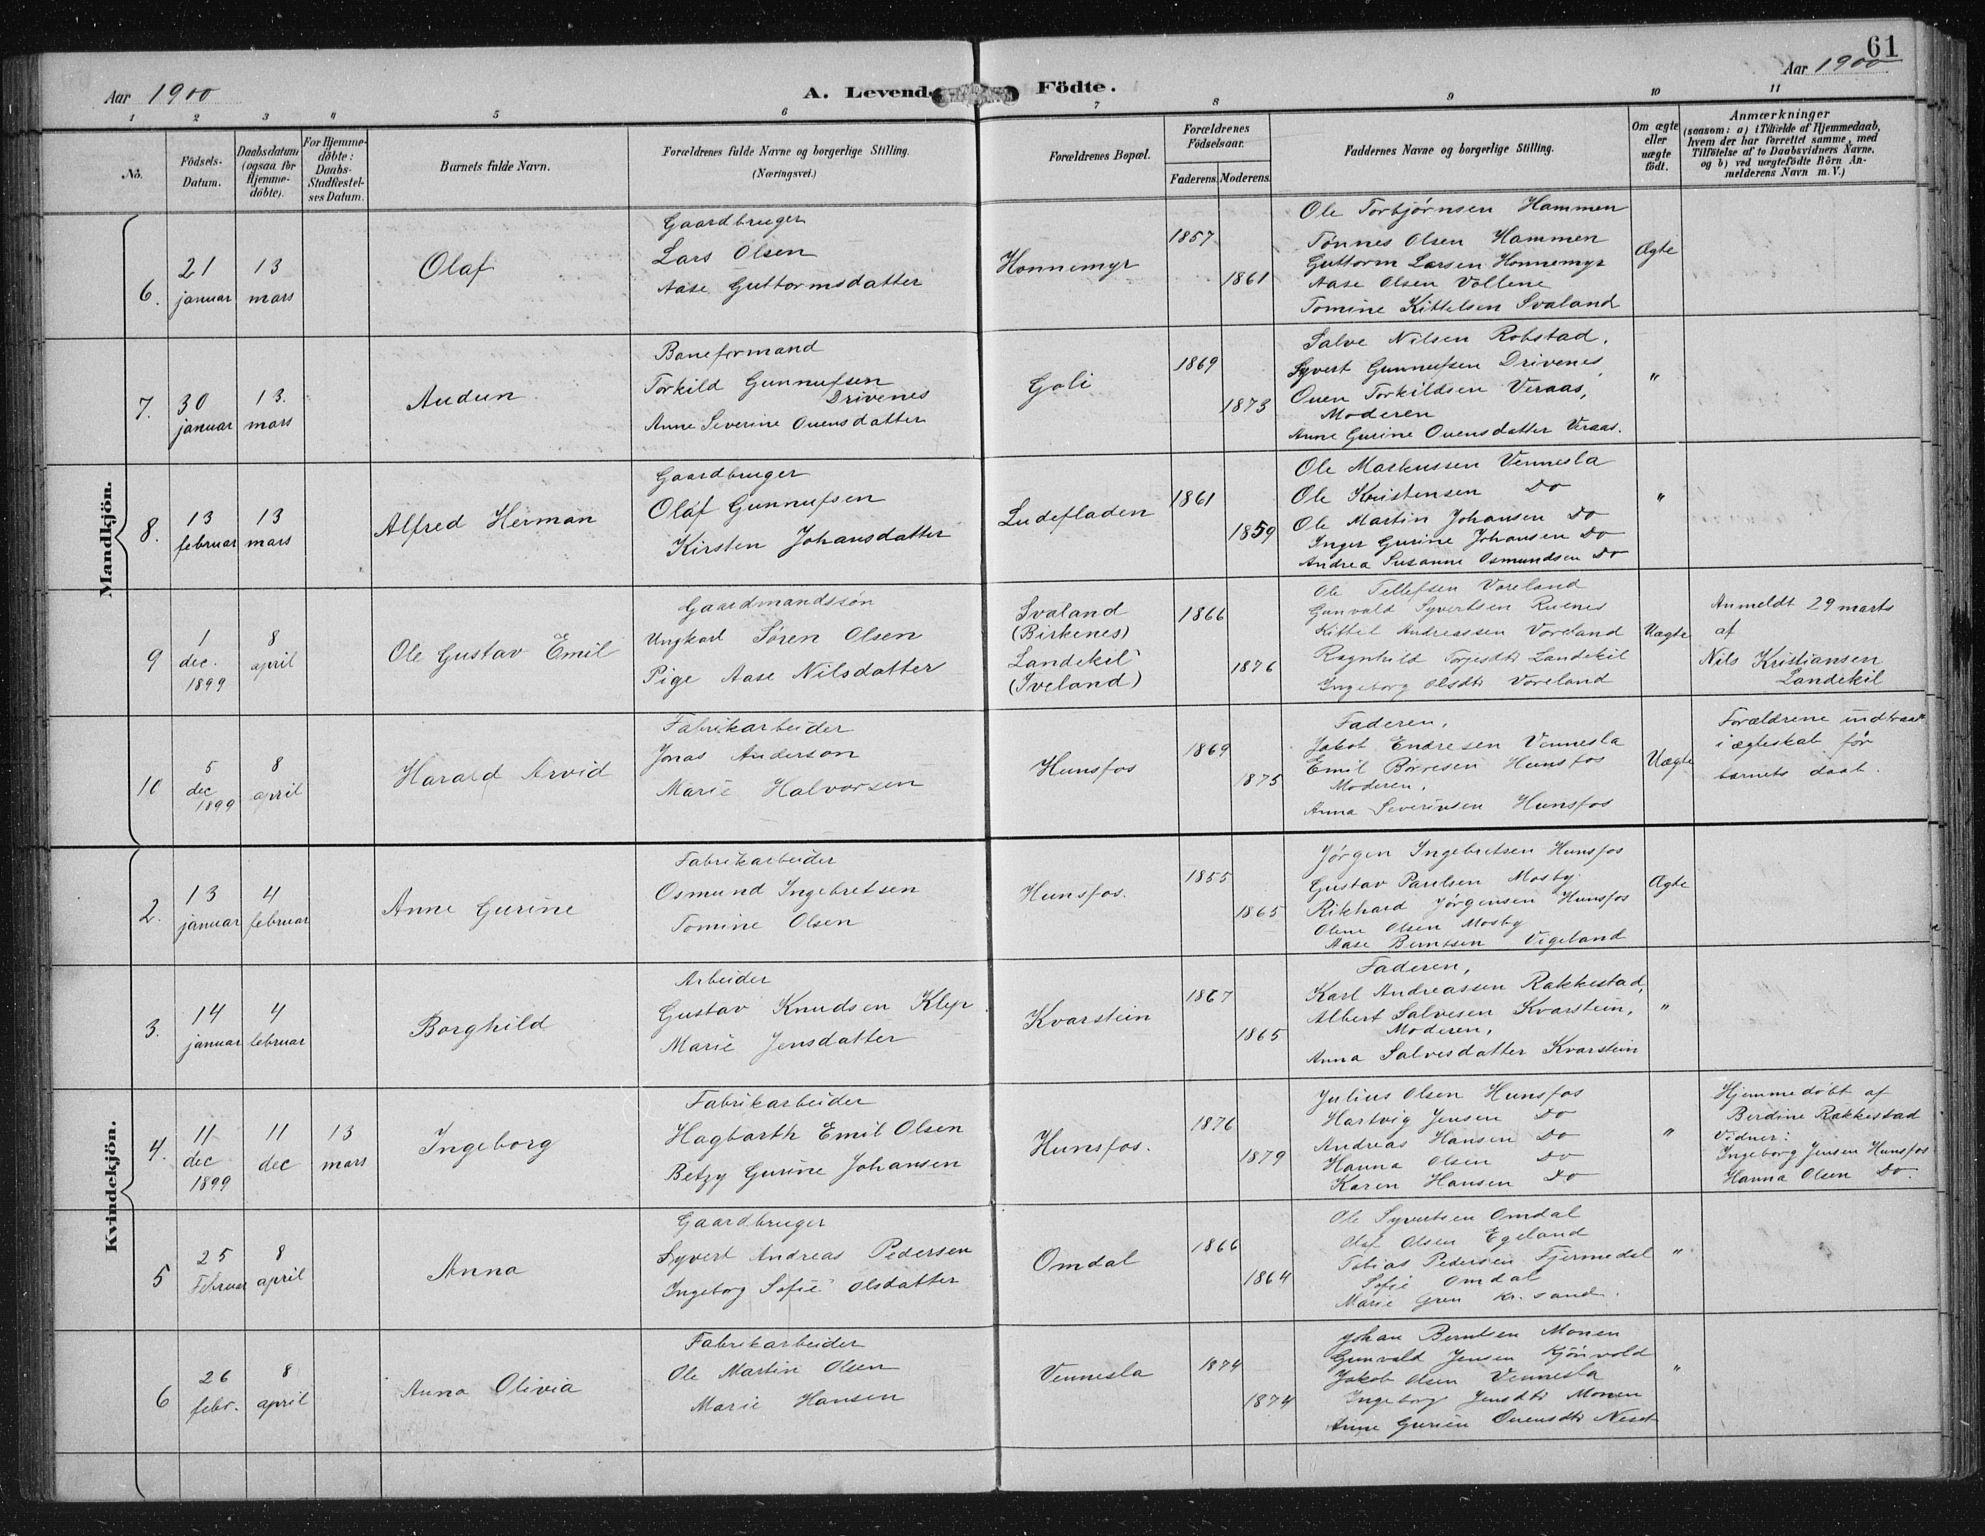 61
Aar 1900
A. Levende Födte.
Aar 1900
1 2 3 4 5 6 7 8 9 10 11
No.
Födsels-Datum.
Daabsdatum (ogsaa for Hjemme-döbte).
For Hjemme-döbte: Daabs-Stadfæstel-ses Datum.
Barnets fulde Navn.
Forældrenes fulde Navne og borgerlige Stilling.
(Næringsvei.)
Forældrenes Bopæl.
Forældrenes Födselsaar.
Faderens. Moderens.
Faddernes Navne og borgerlige Stilling.
Om ægte eller uægte födt.
Anmærkninger
(saasom: a) i Tilfælde af Hjemmedaab,
hvem der har forrettet samme, med
Tilföielse af to Daabsvidners Navne,
og b) ved uægtefödte Börn An-
melderens Navn m. V.)
Mandkjön.
6. 21 januar
13 mars
Olaf
Gaardbruger
Lars Olsen
Aase Guttormsdatter
Honnemyr
1857
1861
Ole Torbjørnsen Hammen
Tønnes Olsen Hammen
Guttorm Larsen Honnemyr
Aase Olsen Vollene
Tomine Kittelsen Svaland
Ægte
7. 30 januar
13. mars
Audun
Baneformand
Torkild Gunnufsen
Drivenes
Anne Severine Ouensdatter
Goli
1869
1873
Salve Nilsen Robstad.
Syvert Gunnufsen Drivenes,
Ouen Torkildsen Veraas,
Moderen
Anne Gurine Ouensdatter Veraas.
"
8. 13 februar
13 mars
Alfred Herman
Gaardbruger
Olaf Gunnufsen
Kirsten Johansdatter
Ludefladen
1861
1859
Ole Markussen Vennesla
Ole Kristensen Do
Ole Martin Johansen Do
Inger Gurine Johansen Do
Andrea Susanne Osmundsen Do
"
9 1 dec. 1899
8 april
Ole Gustav Emil
Gaardmandssøn
Ungkarl Søren Olsen
Pige Aase Nilsdatter
Svaland
(Birkenes)
Landekil
(Iveland)
1866
1876
Ole Tellefsen Voreland
Gunvald Syvertsen Ruenes
Kittel Andreassen Voreland
Ragnhild Torjesdtr Landekil
Ingeborg Olsdtr Voreland
Uægte
Anmeldt 29 marts
af
Nils Kristiansen
Landekil
10 5 dec 1899
8 april
Harald Arvid
Fabrikarbeider
Jonas Anderson
Marie Halvorsen
Hunsfos
1869
1875
Faderen,
Jakob Endresen Vennesla
Emil Børresen Hunsfos
Moderen,
Anna Severinsen Hunsfos
Uægte
Forældrene indtraadt
i ægteskab før
barnets daab.
Kvindekjön.
2. 13 januar
4 februar
Anne Gurine
Fabrikarbeider
Osmund Ingebretsen
Tomine Olsen
Hunsfos.
1855
1865
Jørgen Ingebretsen Hunsfos
Gustav Paulsen Mosby
Rikhard Jørgensen Hunsfos
Oline Olsen Mosby
Aase Berntsen Vigeland
Ægte
3. 14 januar
4 februar
Borghild
Arbeider
Gustav Knudsen Klep
Marie Jensdatter
Kvarstein
1867
1865
Faderen,
Karl Andreassen Rakkestad,
Albert Salvesen Kvarstein,
Moderen,
Anna Salvesdatter Kvarstein
"
4. 11 dec 1899
11 dec
13 mars
Ingeborg
Fabrikarbeider
Hagbarth Emil Olsen
Betzy Gurine Johansen
Hunsfos.
1876
1879
Julius Olsen Hunsfos
Hartvig Jensen Do
Andreas Hansen Do
Hanna Olsen Do
Karen Hansen Do
"
Hjemmedøbt af
Berdine Rakkestad
Vidner:
Ingeborg Jensen Hunsfos
Hanna Olsen Do.
5 25 Februar
8 april
Anna
Gaardbruger
Syvert Andreas Pedersen
Ingeborg Sofie Olsdatter
Omdal
1866
1864
Ole Syvertsen Omdal
Olaf Olsen Egeland
Tobias Pedersen Fjermedal
Sofie Omdal
Marie Kr.sand.
"
6 26 febr.
8 april
Anna Olivia
Fabrikarbeider
Ole Martin Olsen
Marie Hansen
Vennesla
1874
1874
Johan Berntsen Monen
Gunvald Jensen Kjønvold
Jakob Olsen Vennesla
Ingeborg Jensdtr Monen
Anne Gurine Ouensdtr Neset
"